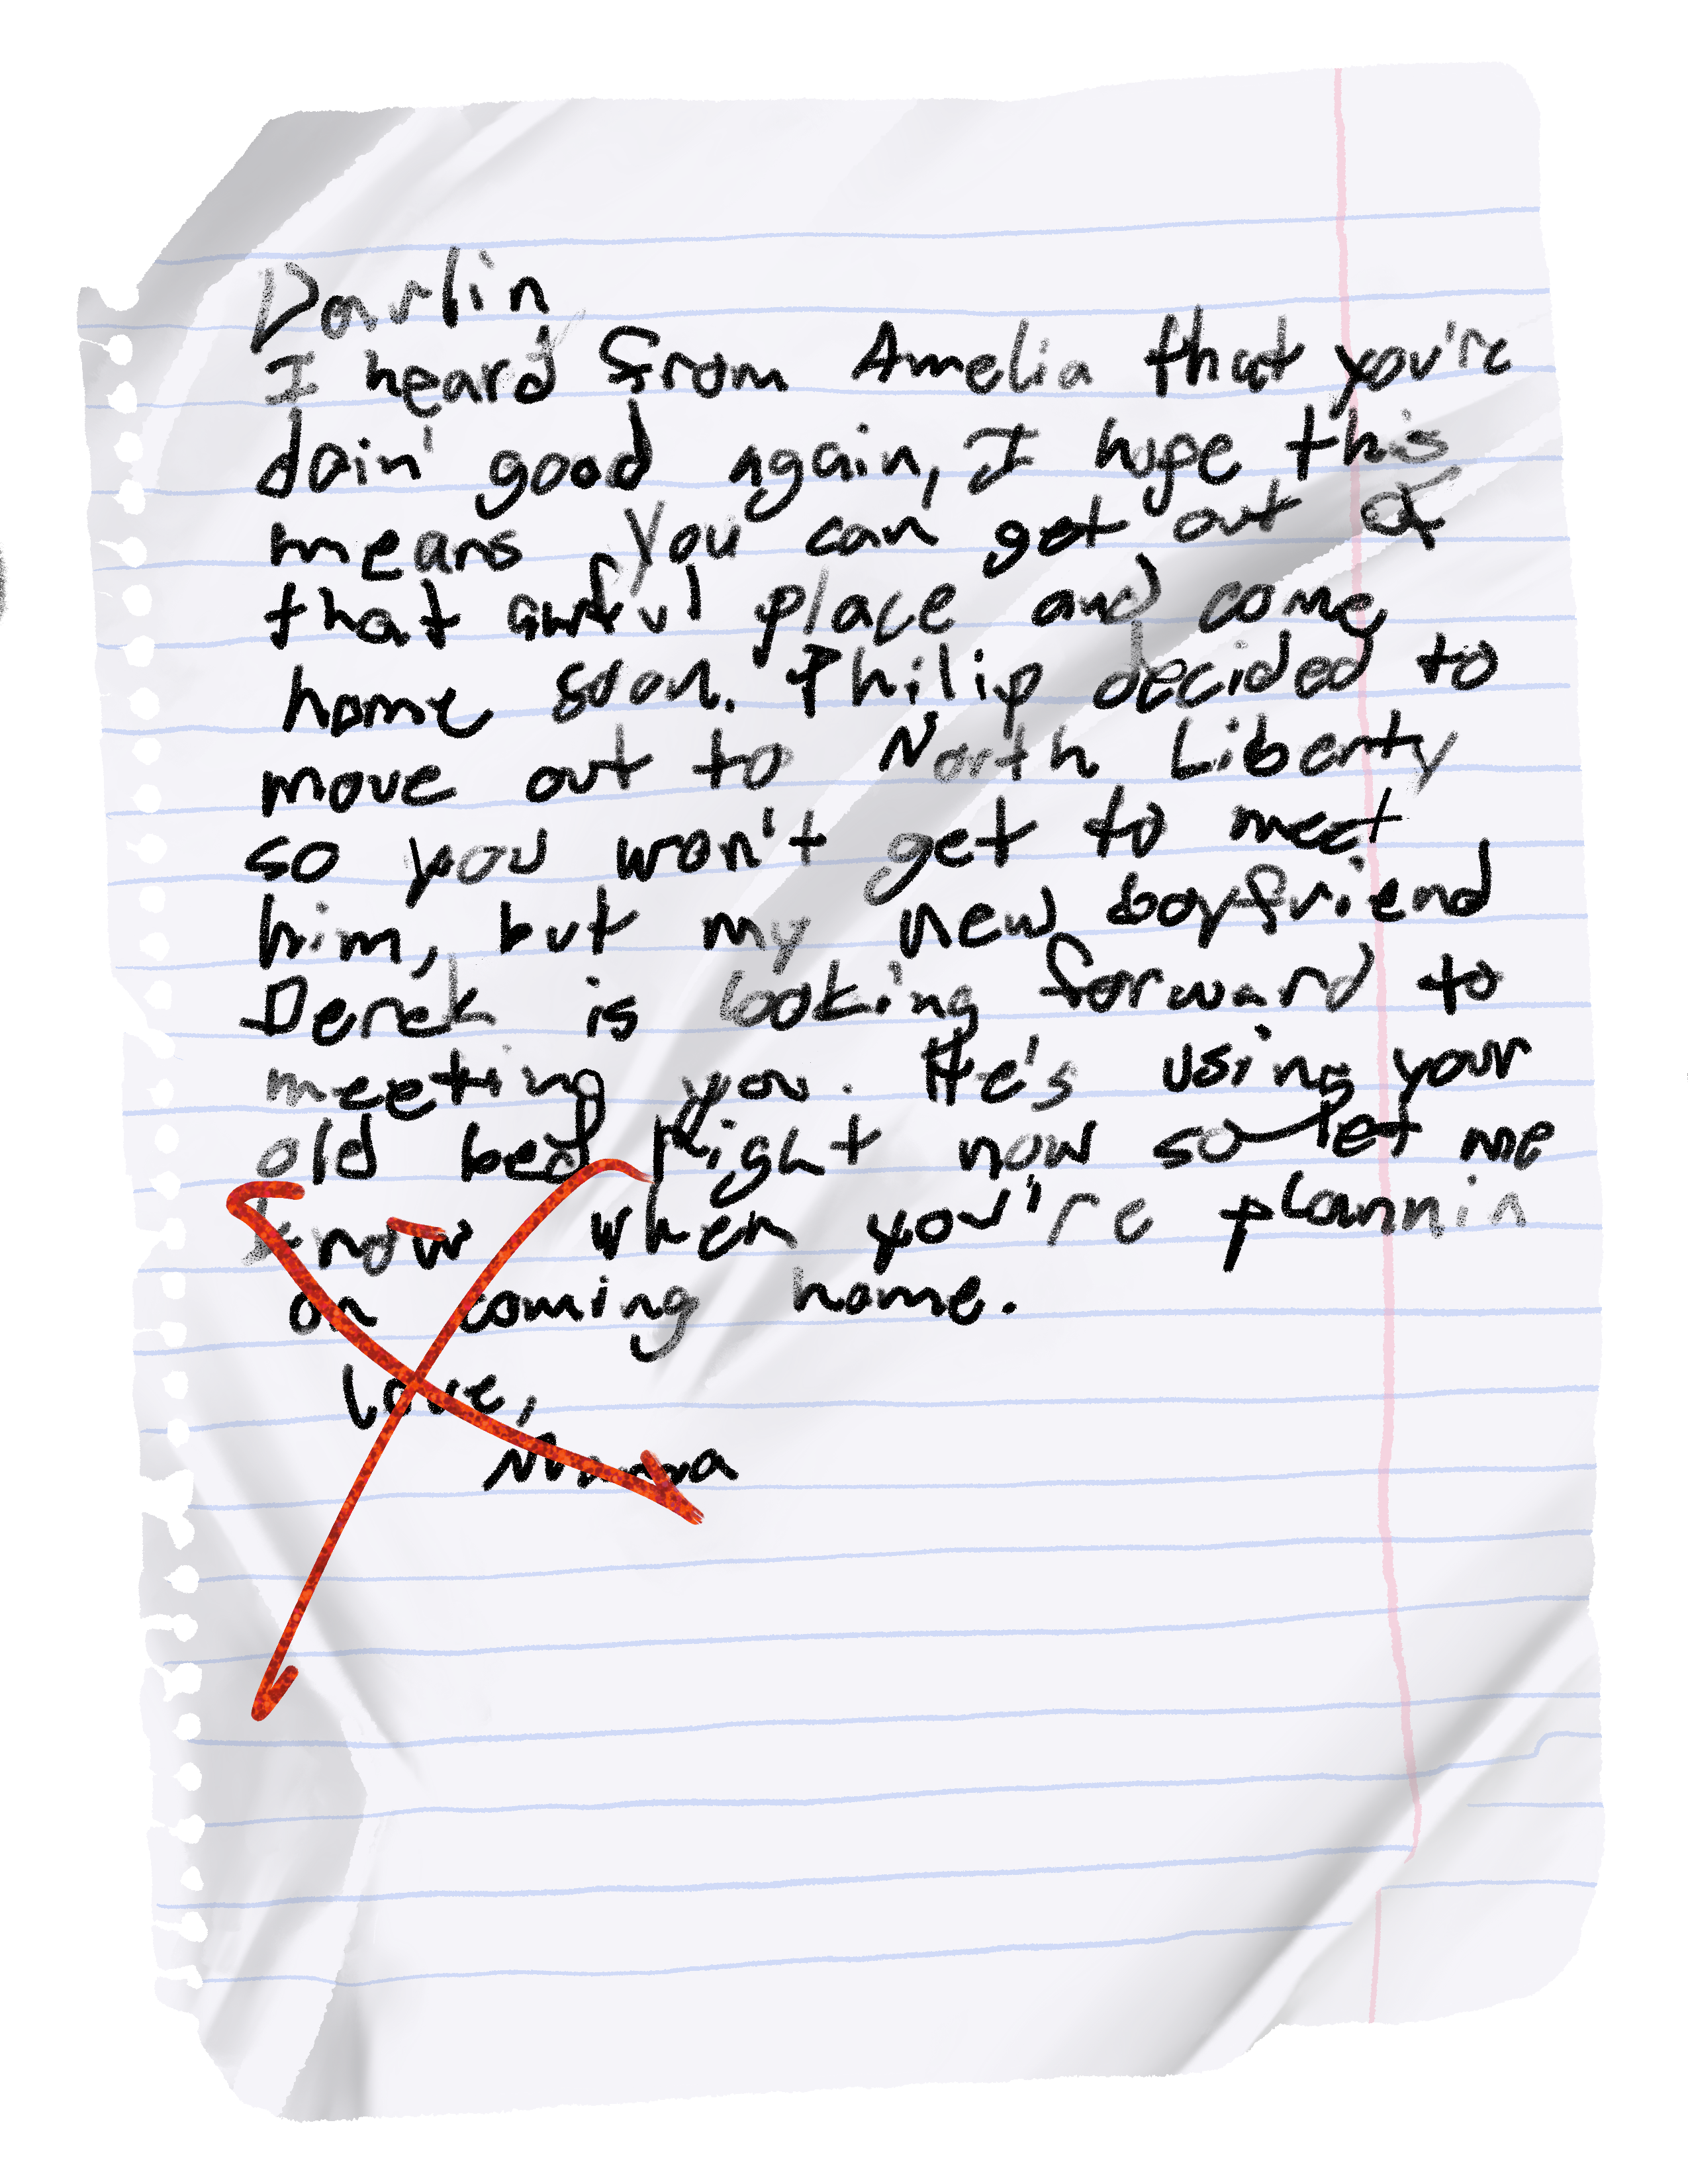 Darlin
I heard from Amelia that you're
doin' good again, I hope this
means you can get out of
that awful place and come
home soon. Philip decided to
move out to North Liberty
so you won't get to meet
him, but my new boyfriend
Derek is looking forward to
meeting you. He's using your
old bed right now so let me
know when you're plannin
on coming home.
Love,
Mama